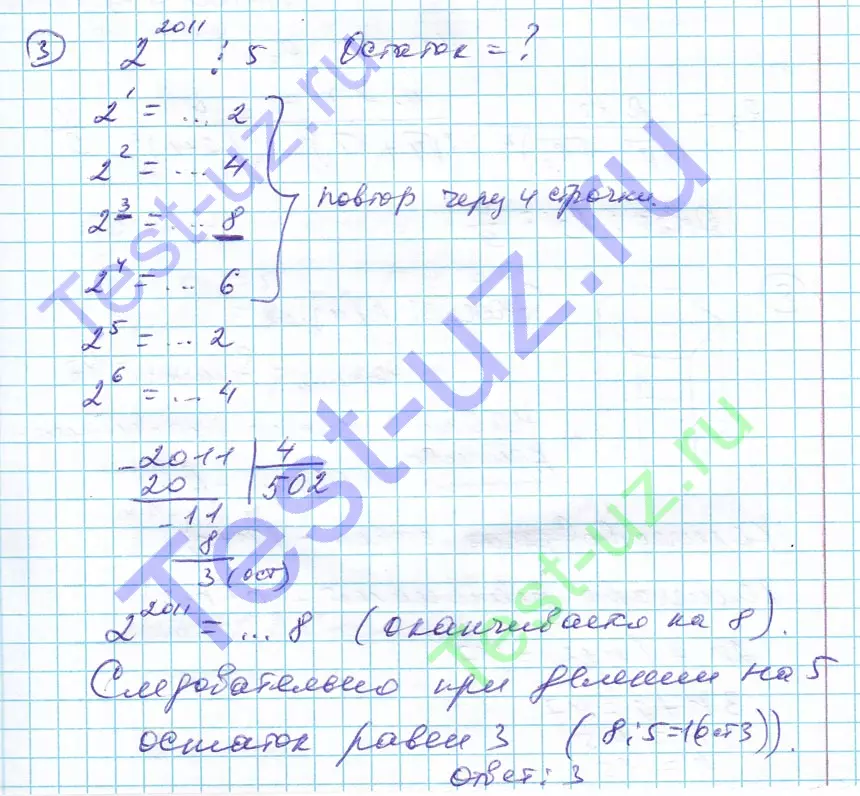 ③ 2^2011 : 5 Остаток = ?
2^1 = ... 2
2^2 = ... 4
2^3 = ... 8
2^4 = ... 6
повтор через 4 строчки.
2^5 = ... 2
2^6 = ... 4
-2011 | 4
20 | 502
-11
8
3 (ост)
2^2011 = ... 8 (оканчивается на 8).
Следовательно при делении на 5
остаток равен 3 (8:5=1(ост3)).
ответ: 3
Test-uz.ru
Test-uz.ru
Test-uz.ru